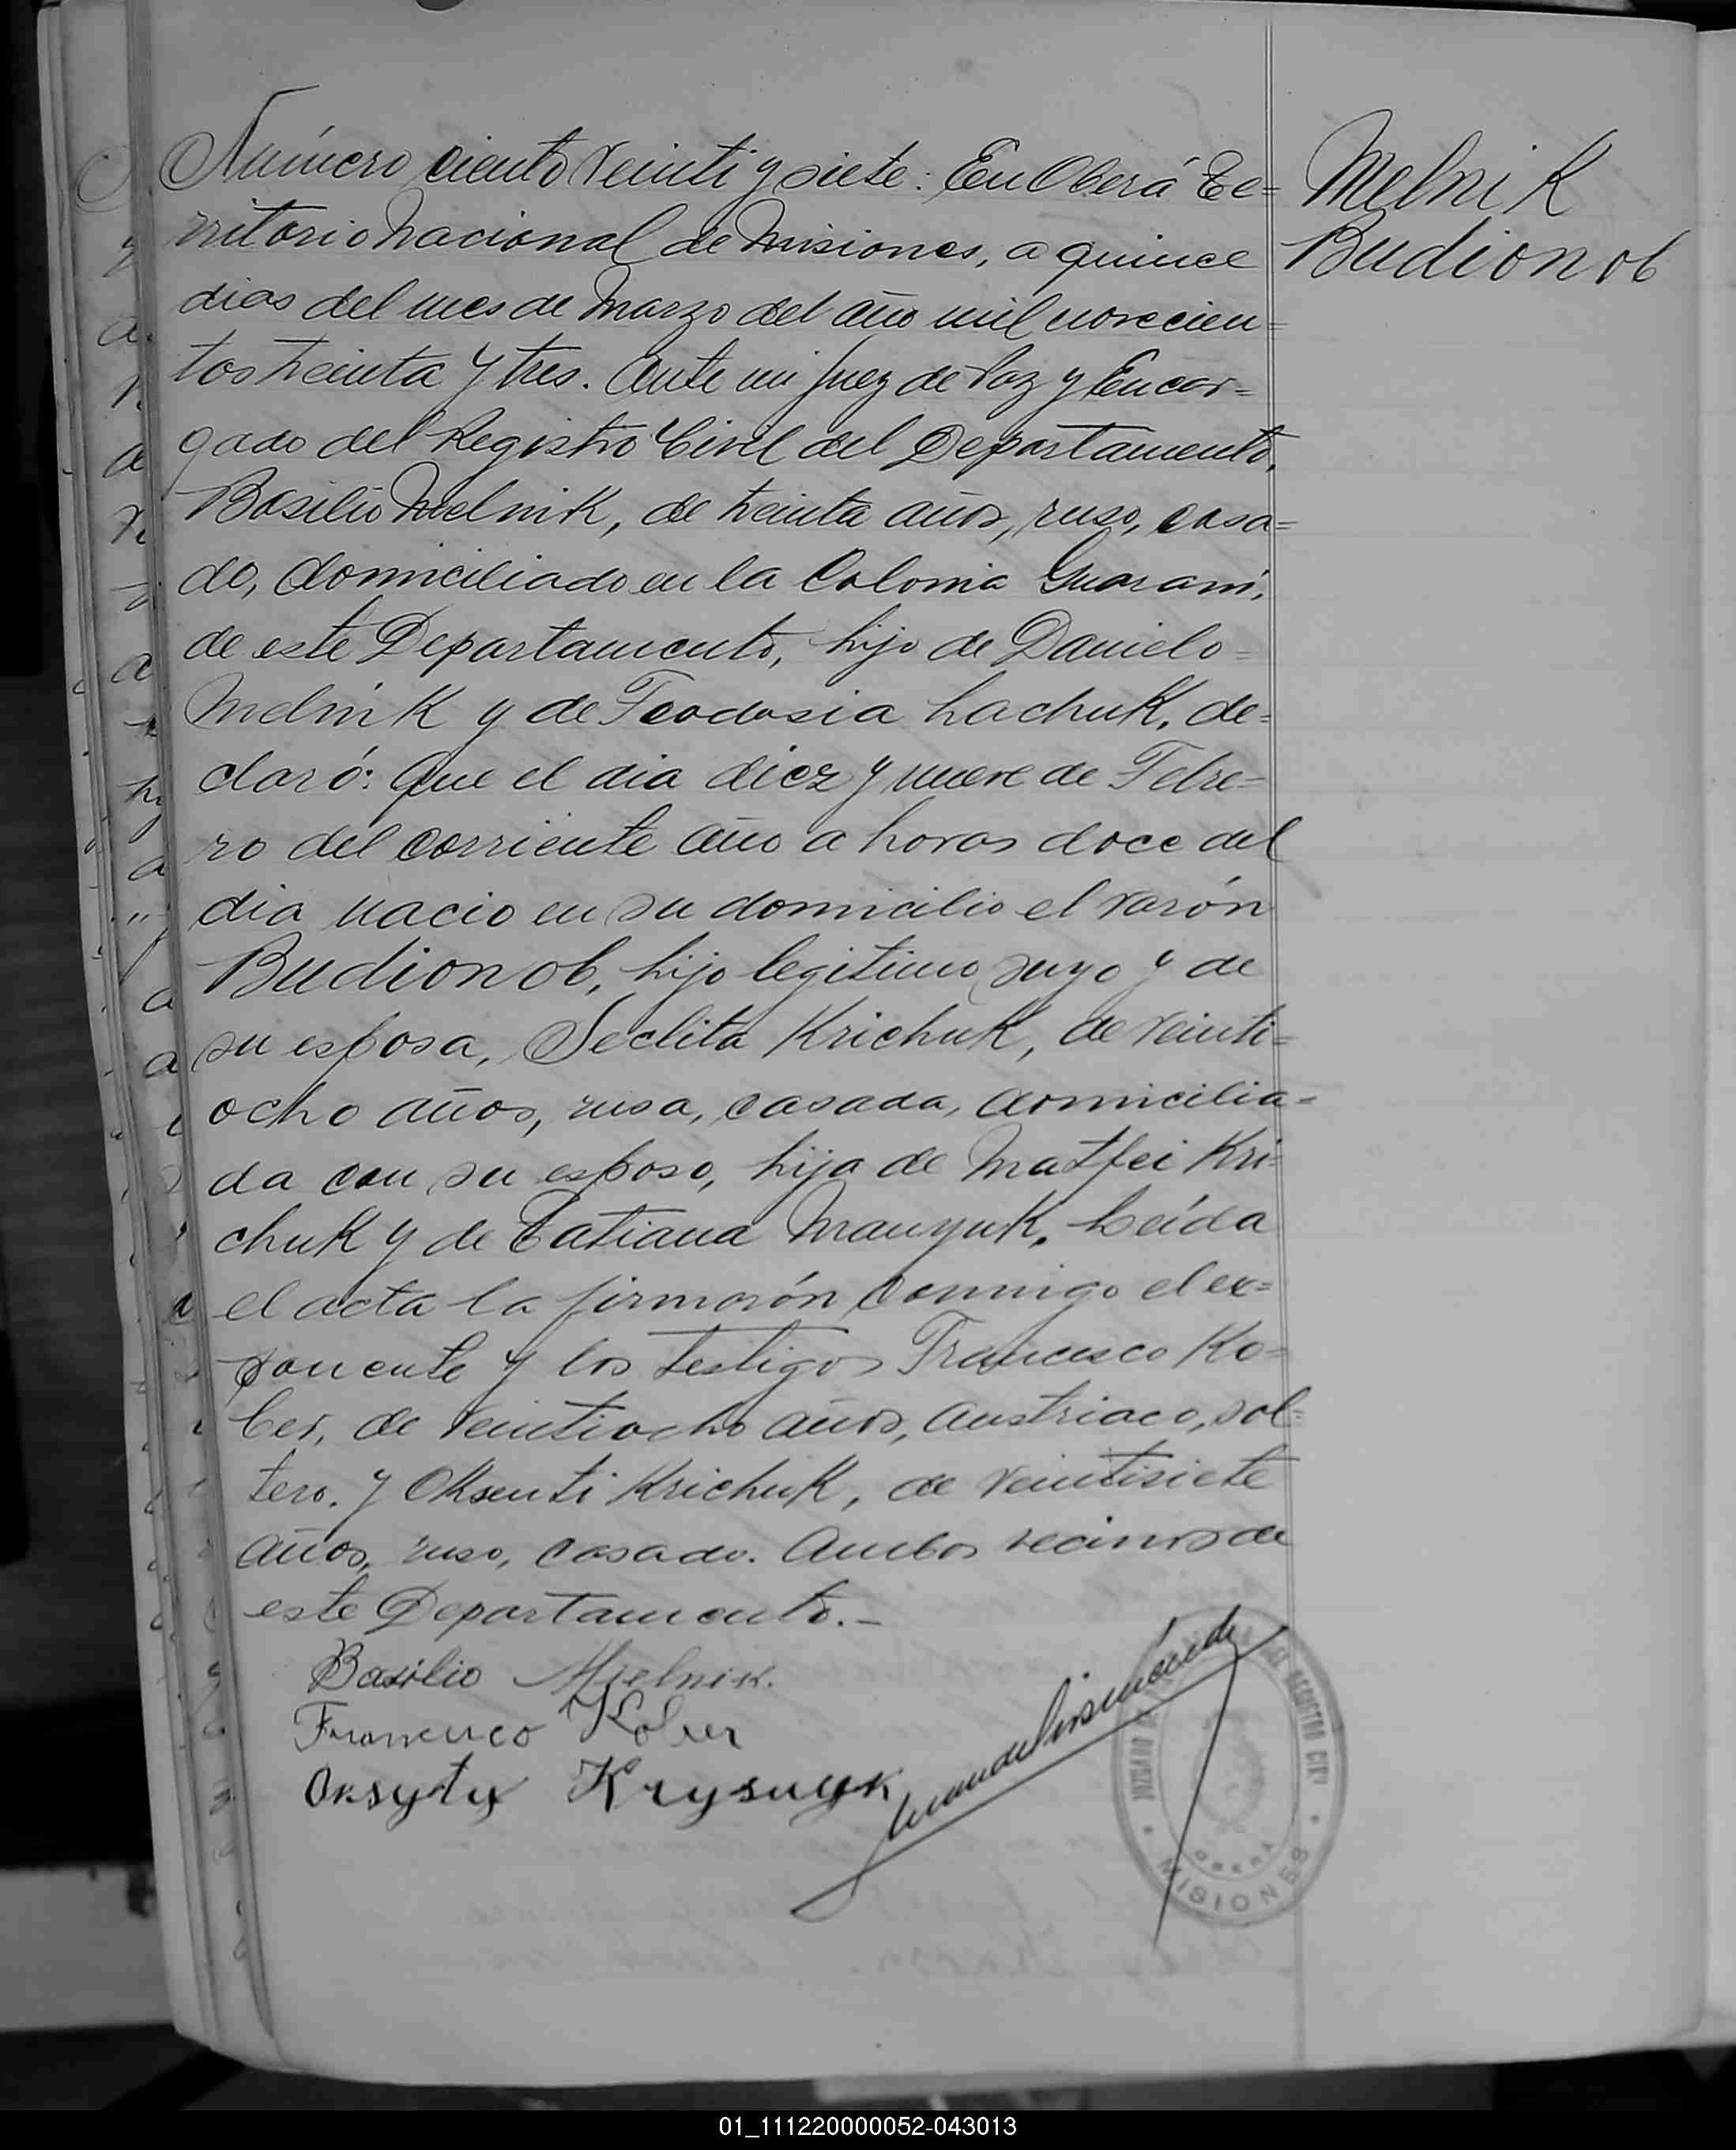 Número ciento veinti y siete: En Oberá Te=
rritorio Nacional de Misiones, a quince
dias del mes de Marzo del año mil novecien=
tos treinta y tres. Ante mi Juez de Paz y Encar=
gado del Registro Civil del Departamento,
Basilio Melnik, de treinta años, ruso, casa=
do, domiciliado en la Colonia Guarani,
de este Departamento, hijo de Danielo
Melnik y de Teodosia Lachuk, de=
claró: Que el dia diez y nueve de Febre=
ro del corriente año a horas doce del
dia nacio en su domicilio el varón
Budionob, hijo legitimo suyo y de
su esposa, Seclita Krichuk, de veinti=
ocho años, rusa, casada, domicilia=
da con su esposo, hija de Matfei Kri=
chuk y de Tatiana Manyuk. Leída
el acta la firmarón conmigo el ex=
ponente y los testigos Francisco Ko=
ber, de veintiocho años, austriaco, sol=
tero. y Oksenti Krichuk, de veintisiete
años, ruso, casado. Ambos vecinos de
este Departamento.-
Basilio Mielnik.
Francisco Kober
Oksyty Krysuyk
Melnik
Budionob
JUZGADO DE REGISTRO CIVIL
OBERÁ
MISIONES
01_111220000052-043013